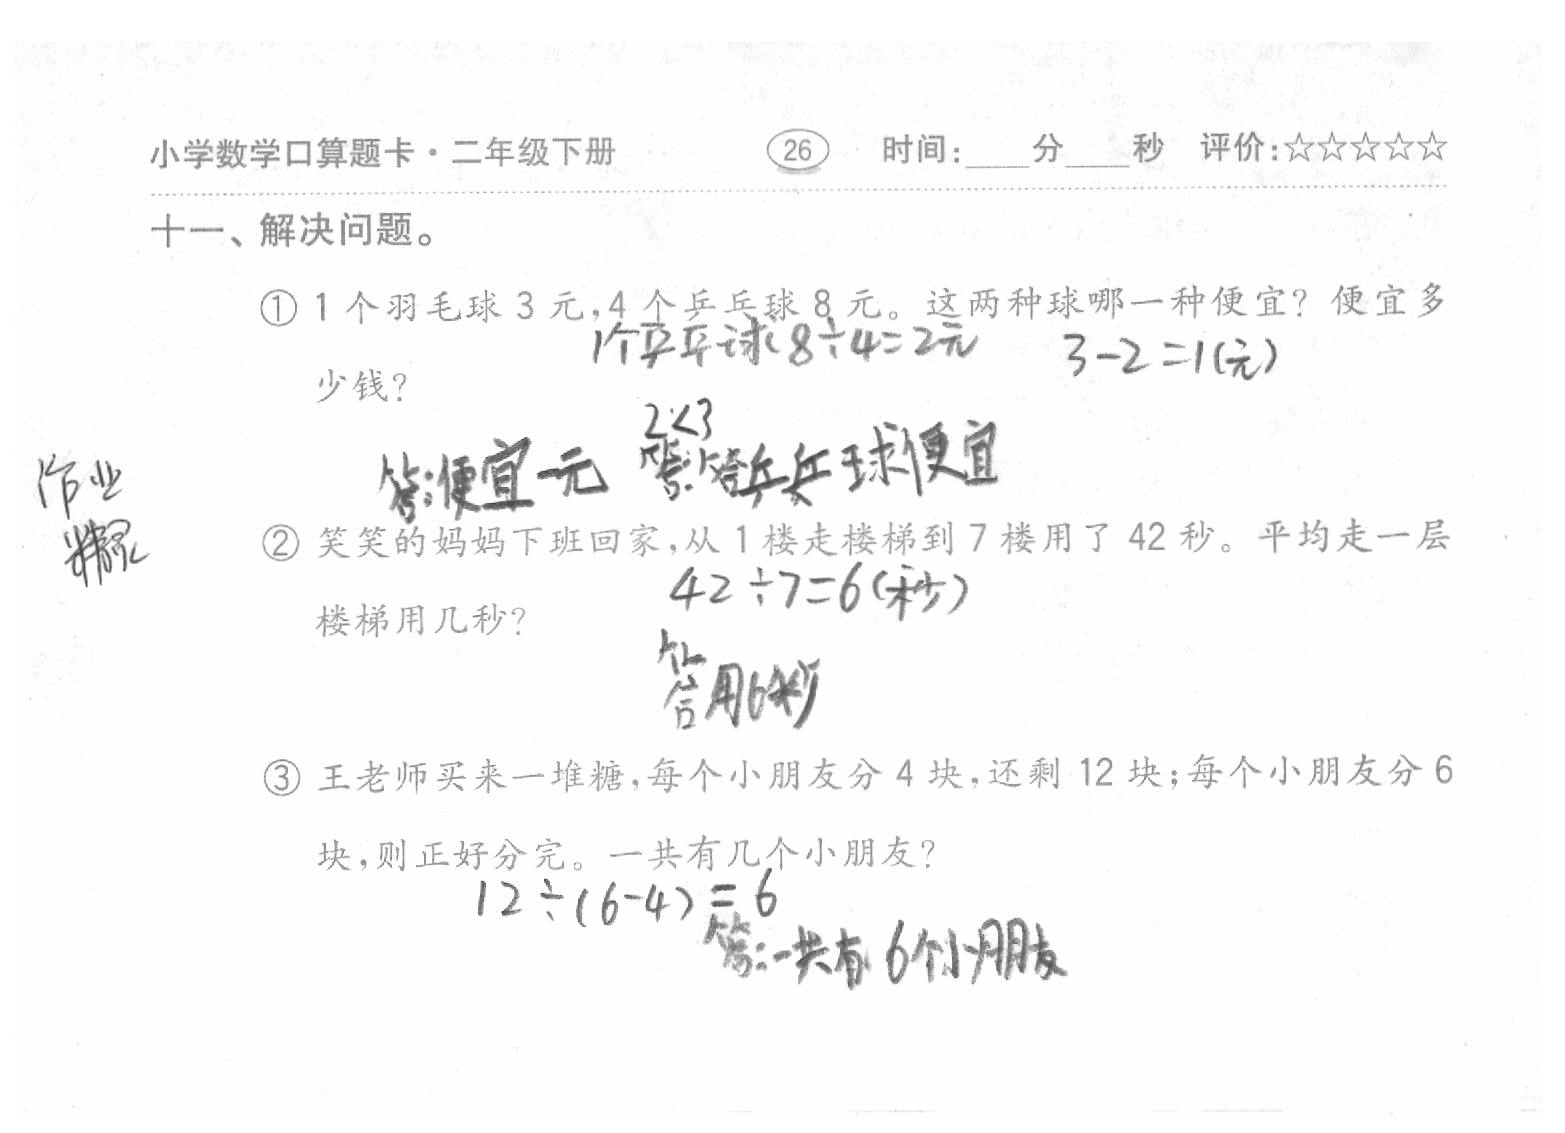 小学数学口算题卡·二年级下册 26 时间:____分____秒 评价:☆☆☆☆☆
十一、解决问题。
① 1个羽毛球3元,4个乒乓球8元。这两种球哪一种便宜?便宜多
1个乒乓球 8÷4=2元 3-2=1(元)
少钱?
2<3
答:便宜一元 答:答乒乓球便宜
作业
② 笑笑的妈妈下班回家,从1楼走楼梯到7楼用了42秒。平均走一层
42÷7=6(秒)
楼梯用几秒?
答用6秒
③ 王老师买来一堆糖,每个小朋友分4块,还剩12块;每个小朋友分6
块,则正好分完。一共有几个小朋友?
12÷(6-4)=6
答:一共有6个小朋友